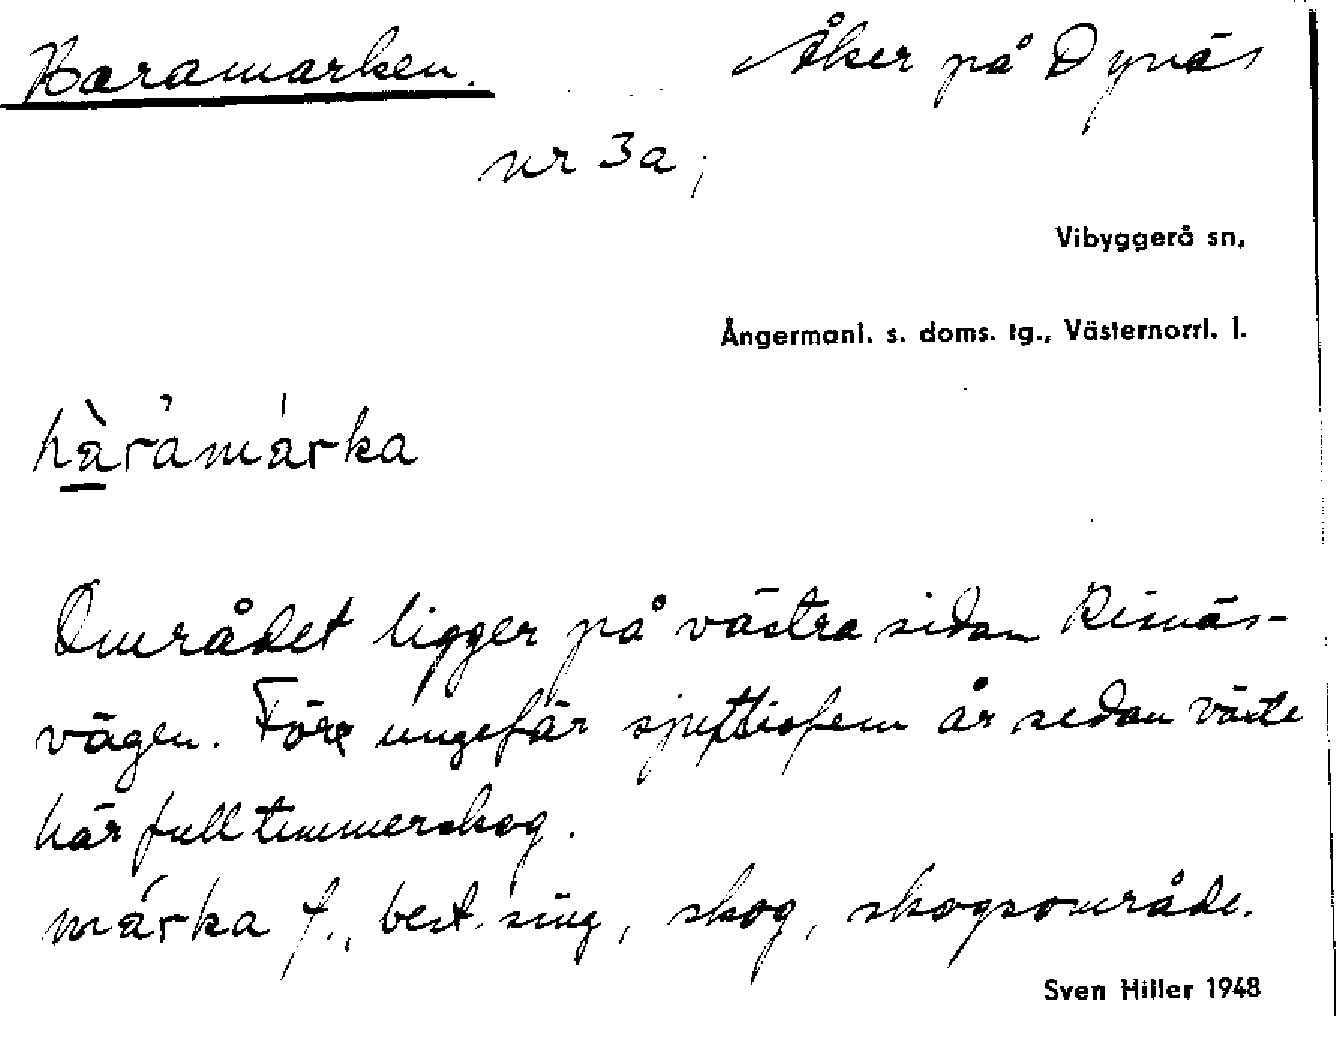 Haramarken. Åker på Dynäs
nr 3a;
Vibyggerå sn,
Ångermanl. s. doms. tg., Västernorrl. l.
hàramárka
Området ligger på västra sidan Risnäs-
vägen. Före ungefär sjuttiofem år sedan växte
här full timmerskog.
márka f., best. sing, skog, skogsområde.
Sven Hiller 1948